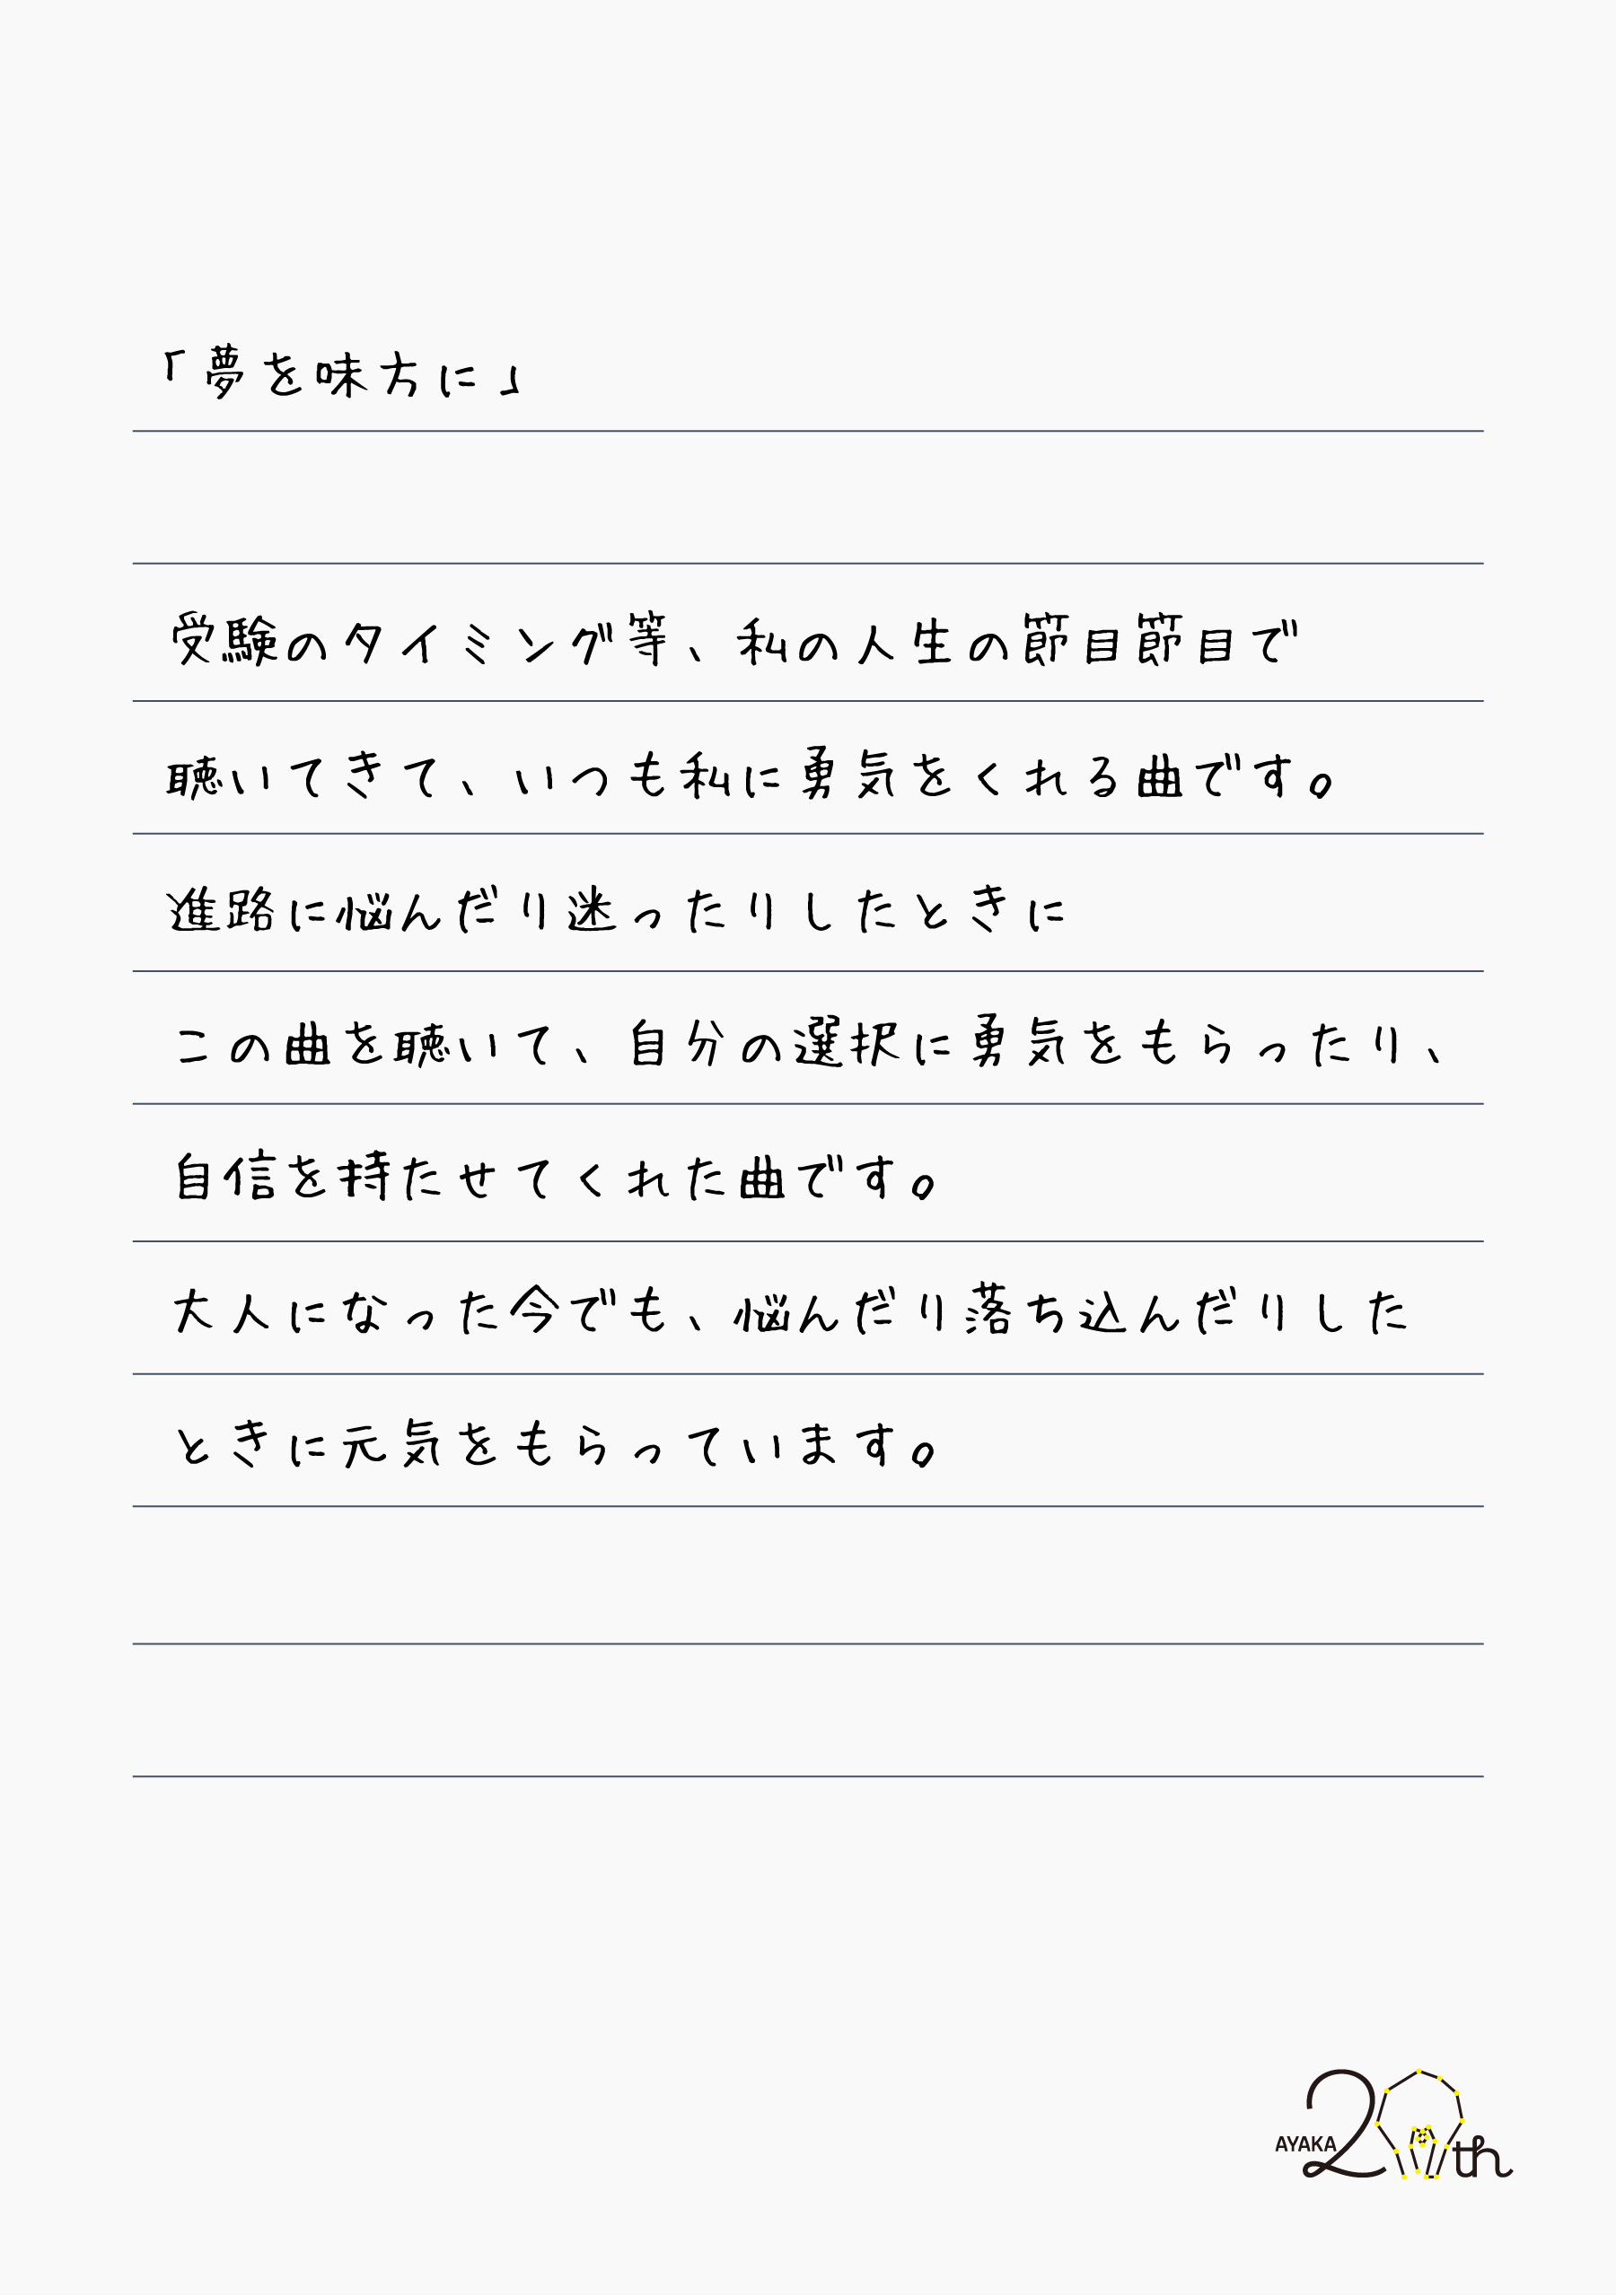 「夢を味方に」
受験のタイミング等、私の人生の節目節目で
聴いてきて、いつも私に勇気をくれる曲です。
進路に悩んだり迷ったりしたときに
この曲を聴いて、自分の選択に勇気をもらったり、
自信を持たせてくれた曲です。
大人になった今でも、悩んだり落ち込んだりした
ときに元気をもらっています。
AYAKA 20th